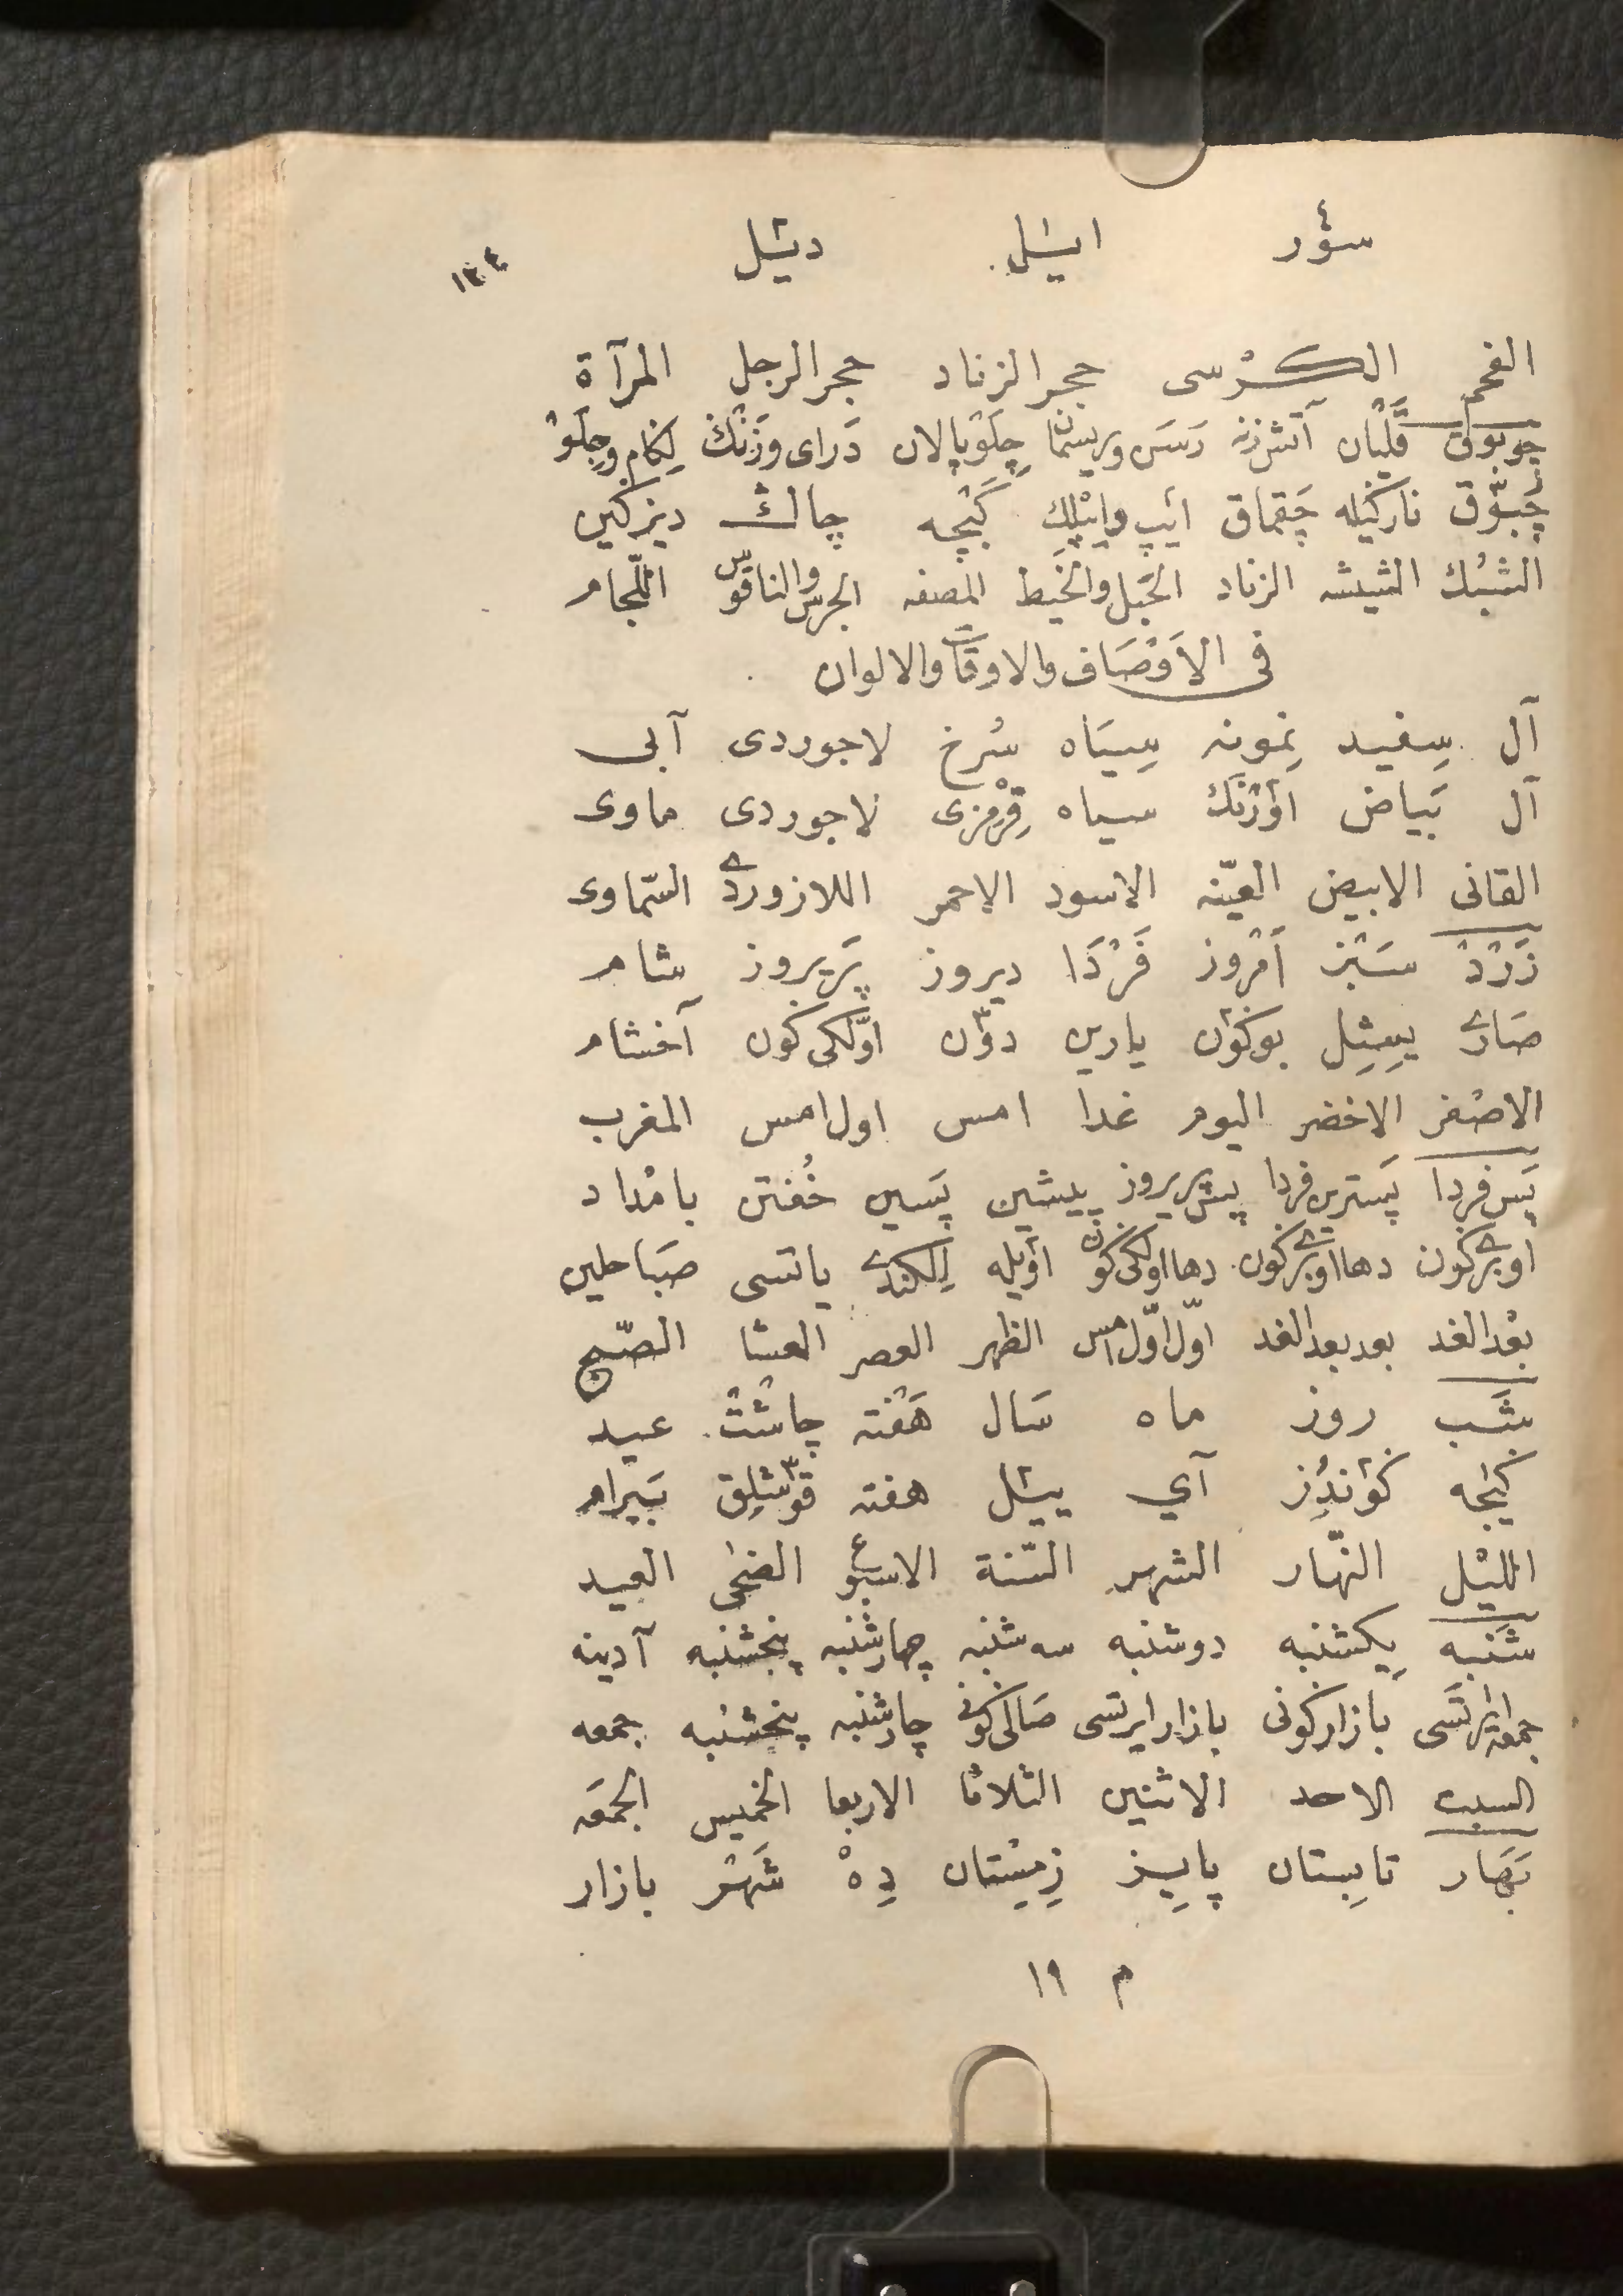 سؤر ايشل ديشل ١٣٤
الفحم الكُرْسى حجر الزناد حجر الرجل المرآة
چوبوق قَلْيان آتش زنه رَسَن وريسمان چِلَوْپالان دَراى وزَنْكْ لِكام وجِلَوْ
چُبّوُق ناركيله چَقماق ائپ وائپْلِكِ كَيْجه چاكْ ديزكين
الشبُك الشيشه الزناد الحَبل والخيط المصفه الجرس والناقوس اللّجام
فى الاَوْصَاف والاوقَات والالوان
آل سِفيد نِمونه سِيَاه سُرخ لاجوردى آبى
آل بَياض اؤرْنَكْ سياه قِرْمْزى لاجوردى ماوى
القانى الابيض العيّنه الاسود الاحمر اللازوردے السّماوى
زَرْدْ سَبْز اَمْرُوز فَرْدَا ديروز پَريروز شام
صَارے يٖشِل بوكؤن يارين دؤن اوّلكى كون آخشام
الاصْفر الاخضر اليوم غدا امس اول امس المغرب
پَس فردا پَسترين فردا پيش پريروز پيشين پَسين خُفتن بامْداد
اوبرے كون دها اوبرے كون دها اولكى كون اؤيله اِلكندے ياتسى صَبَاحلين
بعْد الغد بعد بعد الغد اوّل اوّل امس الظهر العصر العشا الصّبح
شَب روز ماه سَال هَفْته چاشْتْ عيد
كئجه كؤندُز آي يئل هفته قوٓشلِق بَيرام
الليْل النّهار الشهر السّنة الاسبوع الضحٰى العيد
شَنبه يكشنبه دوشنبه سه شنبه چهارشنبه پنجشنبه آدينه
جمعه ايرتَسى بازار كونى بازار ايرتسى صَالى كونى چارشنبه پنجشنبه جمعه
السبت الاحد الاثنين الثلاثا الاربعا الخميس الجمعَه
بَهَار تابِستان پايِيز زِمِسْتان دِهْ شَهْر بازار
م ١٩